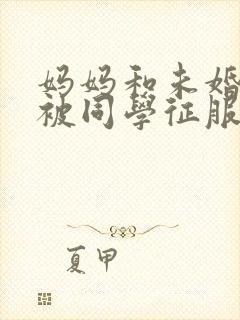 妈妈和未婚
被同學征服
夏甲